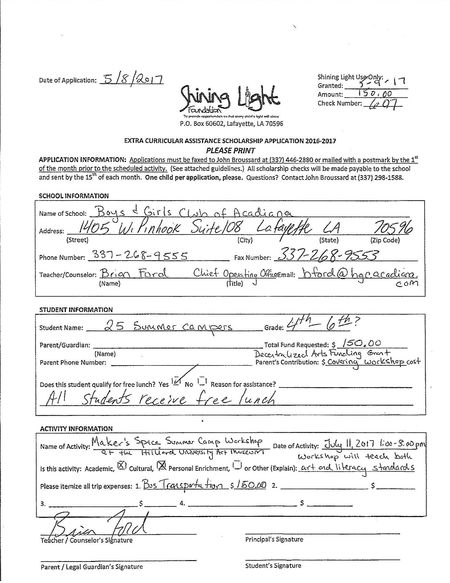 Date of Application: 5/8/2017
Shining Light
Foundation
To provide opportunities so that every child's light will shine
P.O. Box 60602, Lafayette, LA 70596
Shining Light Use Only:
Granted: 5-9-17
Amount: 150.00
Check Number: 607
EXTRA CURRICULAR ASSISTANCE SCHOLARSHIP APPLICATION 2016-2017
PLEASE PRINT
APPLICATION INFORMATION: Applications must be faxed to John Broussard at (337) 446-2880 or mailed with a postmark by the 1st
of the month prior to the scheduled activity. (See attached guidelines.) All scholarship checks will be made payable to the school
and sent by the 15th of each month. One child per application, please. Questions? Contact John Broussard at (337) 298-1588.
SCHOOL INFORMATION
Name of School: Boys & Girls Club of Acadiana
Address: 1405 W. Pinhook Suite 108 Lafayette LA 70596
(Street) (City) (State) (Zip Code)
Phone Number: 337-268-9555 Fax Number: 337-268-9553
Teacher/Counselor: Brian Ford Chief Operating Officer Email: bford@bgcacadiana.com
(Name) (Title)
STUDENT INFORMATION
Student Name: 25 Summer campers Grade: 4th - 6th?
Parent/Guardian: Total Fund Requested: $ 150.00
(Name) Decentralized Arts Funding Grant
Parent Phone Number: Parent's Contribution: $ covering workshop cost
Does this student qualify for free lunch? Yes No Reason for assistance?
All students receive free lunch
ACTIVITY INFORMATION
Name of Activity: Maker's Space Summer Camp Workshop Date of Activity: July 11, 2017 1:00-3:00pm
at the Hilliard University Art Museum Workshop will teach both
Is this activity: Academic, Cultural, Personal Enrichment, or Other (Explain): art and literacy standards
Please itemize all trip expenses: 1. Bus Transportation $150.00 2. $
3. $ 4. $
Brian Ford
Teacher / Counselor's Signature Principal's Signature
Parent / Legal Guardian's Signature Student's Signature